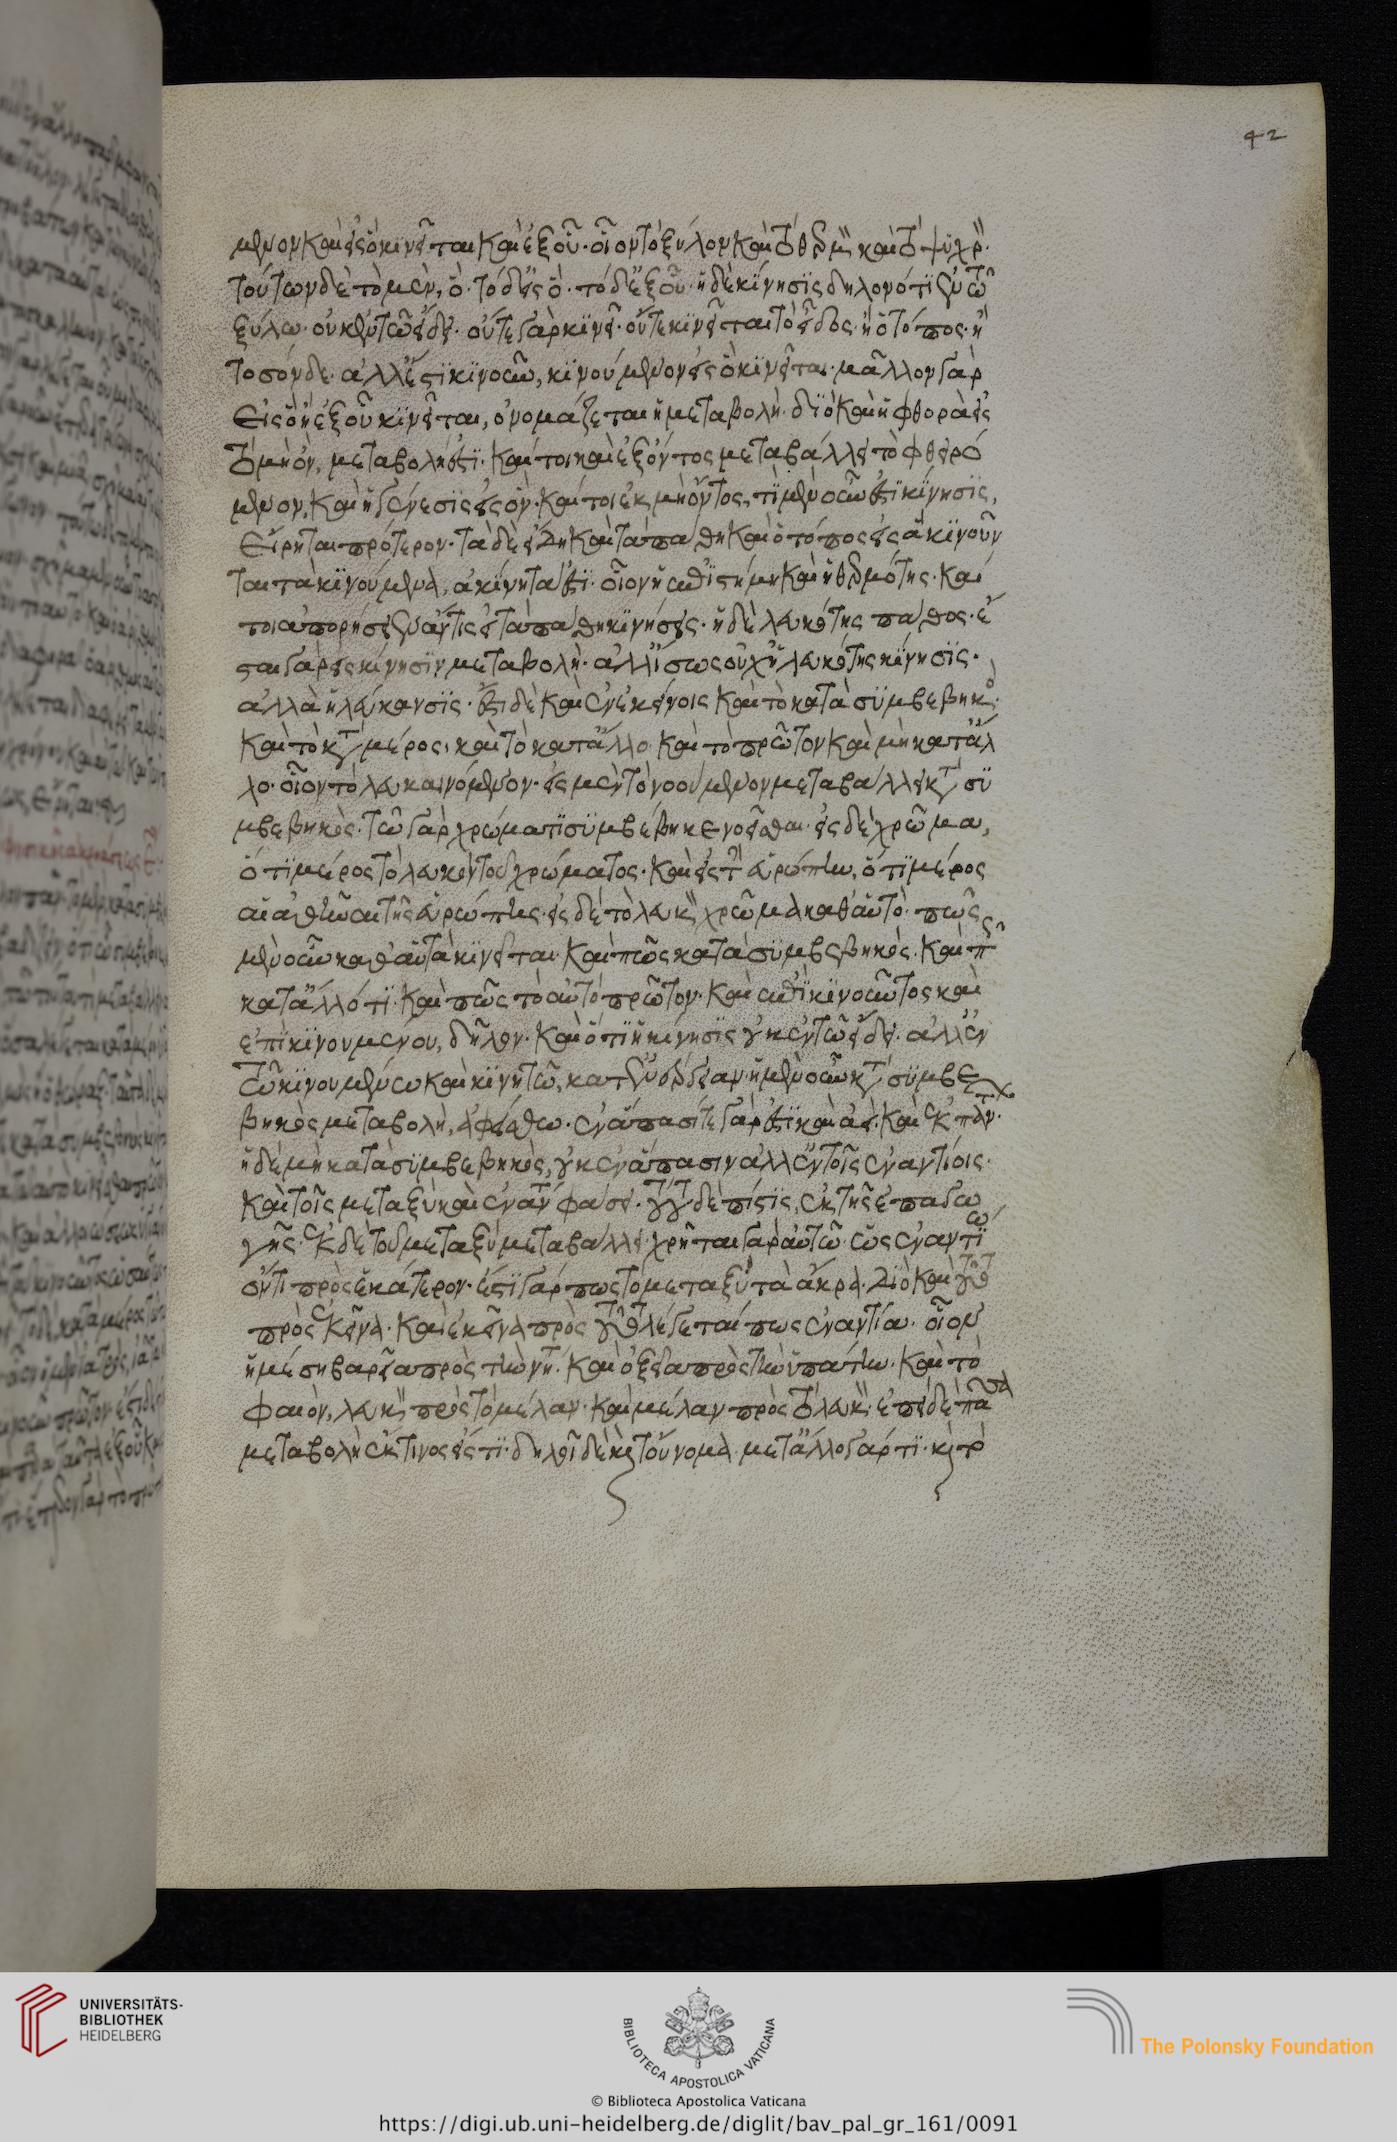 μενον καὶ εἰς ὃ κινεῖται καὶ ἐξ οὗ· οἷον τὸ ξύλον καὶ τὸ θερμὸν καὶ τὸ ψυχρόν·
τούτων δὲ τὸ μὲν, ὅ· τὸ δ' εἰς ὅ· τὸ δ' ἐξ οὗ· ἡ δὲ κίνησις δηλονότι ἐν τῷ
ξύλω· οὐκ ἐν τῷ εἴδει· οὔτε γὰρ κινεῖ· οὔτε κινεῖται τὸ εἶδος· ἢ ὁ τόπος· ἢ
τοσόνδε· ἀλλ' ἔστι κινοῦν, κινούμενον εἰς ὃ κινεῖται· μᾶλλον γὰρ
εἰς ὃ ἢ ἐξ οὗ κινεῖται, ὀνομάζεται ἡ μεταβολή· διὸ καὶ ἡ φθορὰ εἰς
τὸ μὴ ὂν, μεταβολή ἐστι· καίτοι καὶ ἐξ ὄντος μεταβάλλει τὸ φθειρό
μενον, καὶ ἡ γένεσις εἰς ὄν· καίτοι ἐκ μὴ ὄντος, τί μὲν οὖν ἐστι κίνησις,
εἴρηται πρότερον· τὰ δὲ εἴδη καὶ τὰ πάθη καὶ ὁ τόπος εἰς ἃ κινοῦν
ται τὰ κινούμενα, ἀκίνητά ἐστι· οἷον ἡ ἐπιστήμη καὶ ἡ θερμότης· καί
τοι ἀπορήσειεν ἄν τις εἰ τὰ πάθη κινήσεις· ἡ δὲ λευκότης πάθος· ἔ
σται γὰρ εἰς κίνησιν μεταβολή· ἀλλ' ἴσως οὐχ ἡ λευκότης κίνησις·
ἀλλὰ ἡ λεύκανσις· ἔστι δὲ καὶ ἐν ἐκείνοις καὶ τὸ κατὰ συμβεβηκὸς·
καὶ τὸ κατὰ μέρος, καὶ τὸ κατ' ἄλλο καὶ τὸ πρῶτον καὶ μὴ κατ' ἄλ
λο· οἷον τὸ λευκαινόμενον· εἰς μὲν τὸ νοούμενον μεταβάλλει κατὰ συ
μβεβηκὸς· τῷ γὰρ χρώματι συμβέβηκε νοεῖσθαι· εἰς δὲ χρῶμα,
ὅτι μέρος τὸ λευκὸν τοῦ χρώματος· καὶ εἰς τὴν εὐρώπην, ὅτι μέρος
αἱ ἀθῆναι τῆς εὐρώπης· εἰς δὲ τὸ λευκὸν χρῶμα καθ' αὑτό· πῶς
μὲν οὖν καθ' αὑτὰ κινεῖται· καὶ πῶς κατὰ συμβεβηκός· καὶ πῶς
κατ' ἄλλό τι· καὶ πῶς τὸ αὐτὸ πρῶτον· καὶ ἐπὶ κινοῦντος καὶ
ἐπὶ κινουμένου, δῆλον· καὶ ὅτι ἡ κίνησις οὐκ ἐν τῷ εἴδει· ἀλλ' ἐν
τῷ κινουμένω καὶ κινητῷ, κατ' ἐνέργειαν· ἡ μὲν οὖν κατὰ συμβε
βηκὸς μεταβολὴ, ἀφείσθω· ἐν ἅπασί τε γάρ ἐστι καὶ ἀεί· καὶ πάντων·
ἡ δὲ μὴ κατὰ συμβεβηκός, οὐκ ἐν ἅπασιν ἀλλ' ἐν τοῖς ἐναντίοις·
καὶ τοῖς μεταξὺ καὶ ἐν ἀντιφάσει· τούτου δὲ πίστις, ἐκ τῆς ἐπαγω
γῆς· ἐκ δὲ τοῦ μεταξὺ μεταβάλλει· χρῆται γὰρ αὐτῷ ὡς ἐναντίω
ὄντι πρὸς ἑκάτερον· ἔστι γάρ πως τὸ μεταξὺ τὰ ἄκρα· διὸ καὶ τοῦτο
πρὸς ἐκεῖνα· καὶ ἐκεῖνα πρὸς τοῦτο λέγεταί πως ἐναντία· οἷον
ἡ μέση βαρεῖα πρὸς τὴν νήτην· καὶ ὀξεῖα πρὸς τὴν ὑπάτην· καὶ τὸ
φαιὸν, λευκὸν πρὸς τὸ μέλαν· καὶ μέλαν πρὸς τὸ λευκόν· ἐπεὶ δὲ πᾶσα
μεταβολὴ ἔκ τινος εἴς τι· δηλοῖ δὲ καὶ τοὔνομα μετ' ἄλλο γάρ τι· καὶ τὸ
42
UNIVERSITÄTS-
BIBLIOTHEK
HEIDELBERG
BIBLIOTECA APOSTOLICA VATICANA
The Polonsky Foundation
© Biblioteca Apostolica Vaticana
https://digi.ub.uni-heidelberg.de/diglit/bav_pal_gr_161/0091